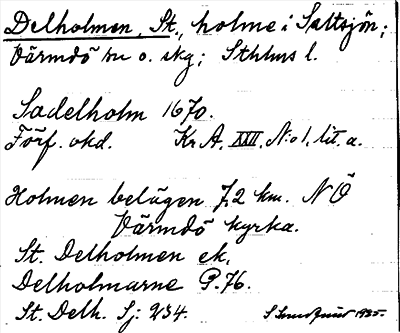 Delholmen, St., holme i Saltsjön;
Värmdö sn o. skg; Sthlms l.
Sadelholm 1670.
Förf. okd. Kr. A. XXII. N:o 1. lit. a.
Holmen belägen 7,2 km. NÖ
Värmdö kyrka.
St. Delholmen ek.
Delholmarne P. 76.
St. Delh. Sj. 234.
1925.